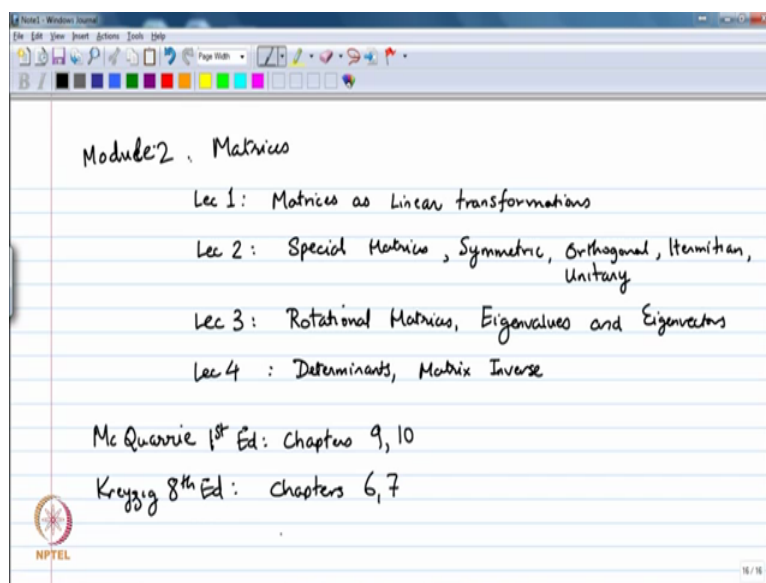 Note1 - Windows Journal
File Edit View Insert Actions Tools Help
Page Width
B I
Module:2. Matrices
Lec 1: Matrices as Linear transformations
Lec 2: Special Matrices, Symmetric, Orthogonal, Hermitian,
Unitary
Lec 3: Rotational Matrices, Eigenvalues and Eigenvectors
Lec 4 : Determinants, Matrix Inverse
McQuarrie 1st Ed: Chapters 9, 10
Kreyzig 8th Ed: Chapters 6, 7
NPTEL
16 / 16